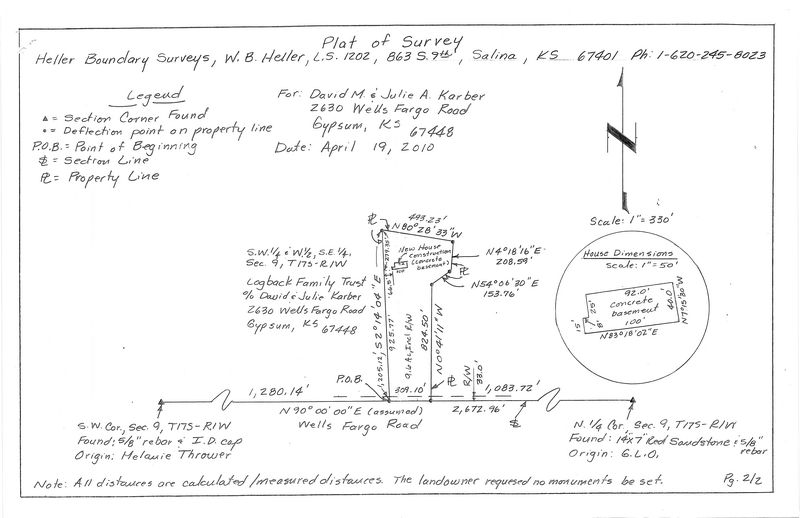 Plat of Survey
Heller Boundary Surveys, W. B. Heller, L.S. 1202, 863 S. 9th, Salina, KS 67401 Ph: 1-620-245-8023
Legend
▲ = Section Corner Found
• = Deflection point on property line
P.O.B. = Point of Beginning
= Section Line
PL = Property Line
For: David M. & Julie A. Karber
2630 Wells Fargo Road
Gypsum, KS 67448
Date: April 19, 2010
N
Scale: 1"= 330'
PL
493.23'
N 80° 28' 33" W
S.W. 1/4 & W. 1/2, S.E. 1/4,
Sec. 9, T17S-R1W
Logback Family Trust
% David & Julie Karber
2630 Wells Fargo Road
Gypsum, KS 67448
New House
construction
(concrete
basement)
N 4° 18' 16" E
208.59'
PL
N 54° 06' 30" E
153.76'
1,205.12', S 2° 14' 04" E
925.77'
9.6 Ac, Incl. R/W
824.50'
N 0° 41' 11" W
House Dimensions
Scale: 1"= 50'
92.0'
Concrete
basement
100'
40.0'
N 7° 15' 30" W
25'
8'
15'
N 83° 18' 02" E
P.O.B.
PL
R/W
33.0'
1,280.14'
309.10'
1,083.72'
N 90° 00' 00" E (assumed)
2,672.96'
Wells Fargo Road
S.W. Cor., Sec. 9, T17S-R1W
Found: 5/8" rebar & I.D. cap
Origin: Melanie Thrower
N. 1/4 Cor. Sec. 9, T17S-R1W
Found: 14"x7" Red Sandstone & 5/8" rebar
Origin: G.L.O.
Note: All distances are calculated/measured distances. The landowner requesed no monuments be set.
Pg. 2/2